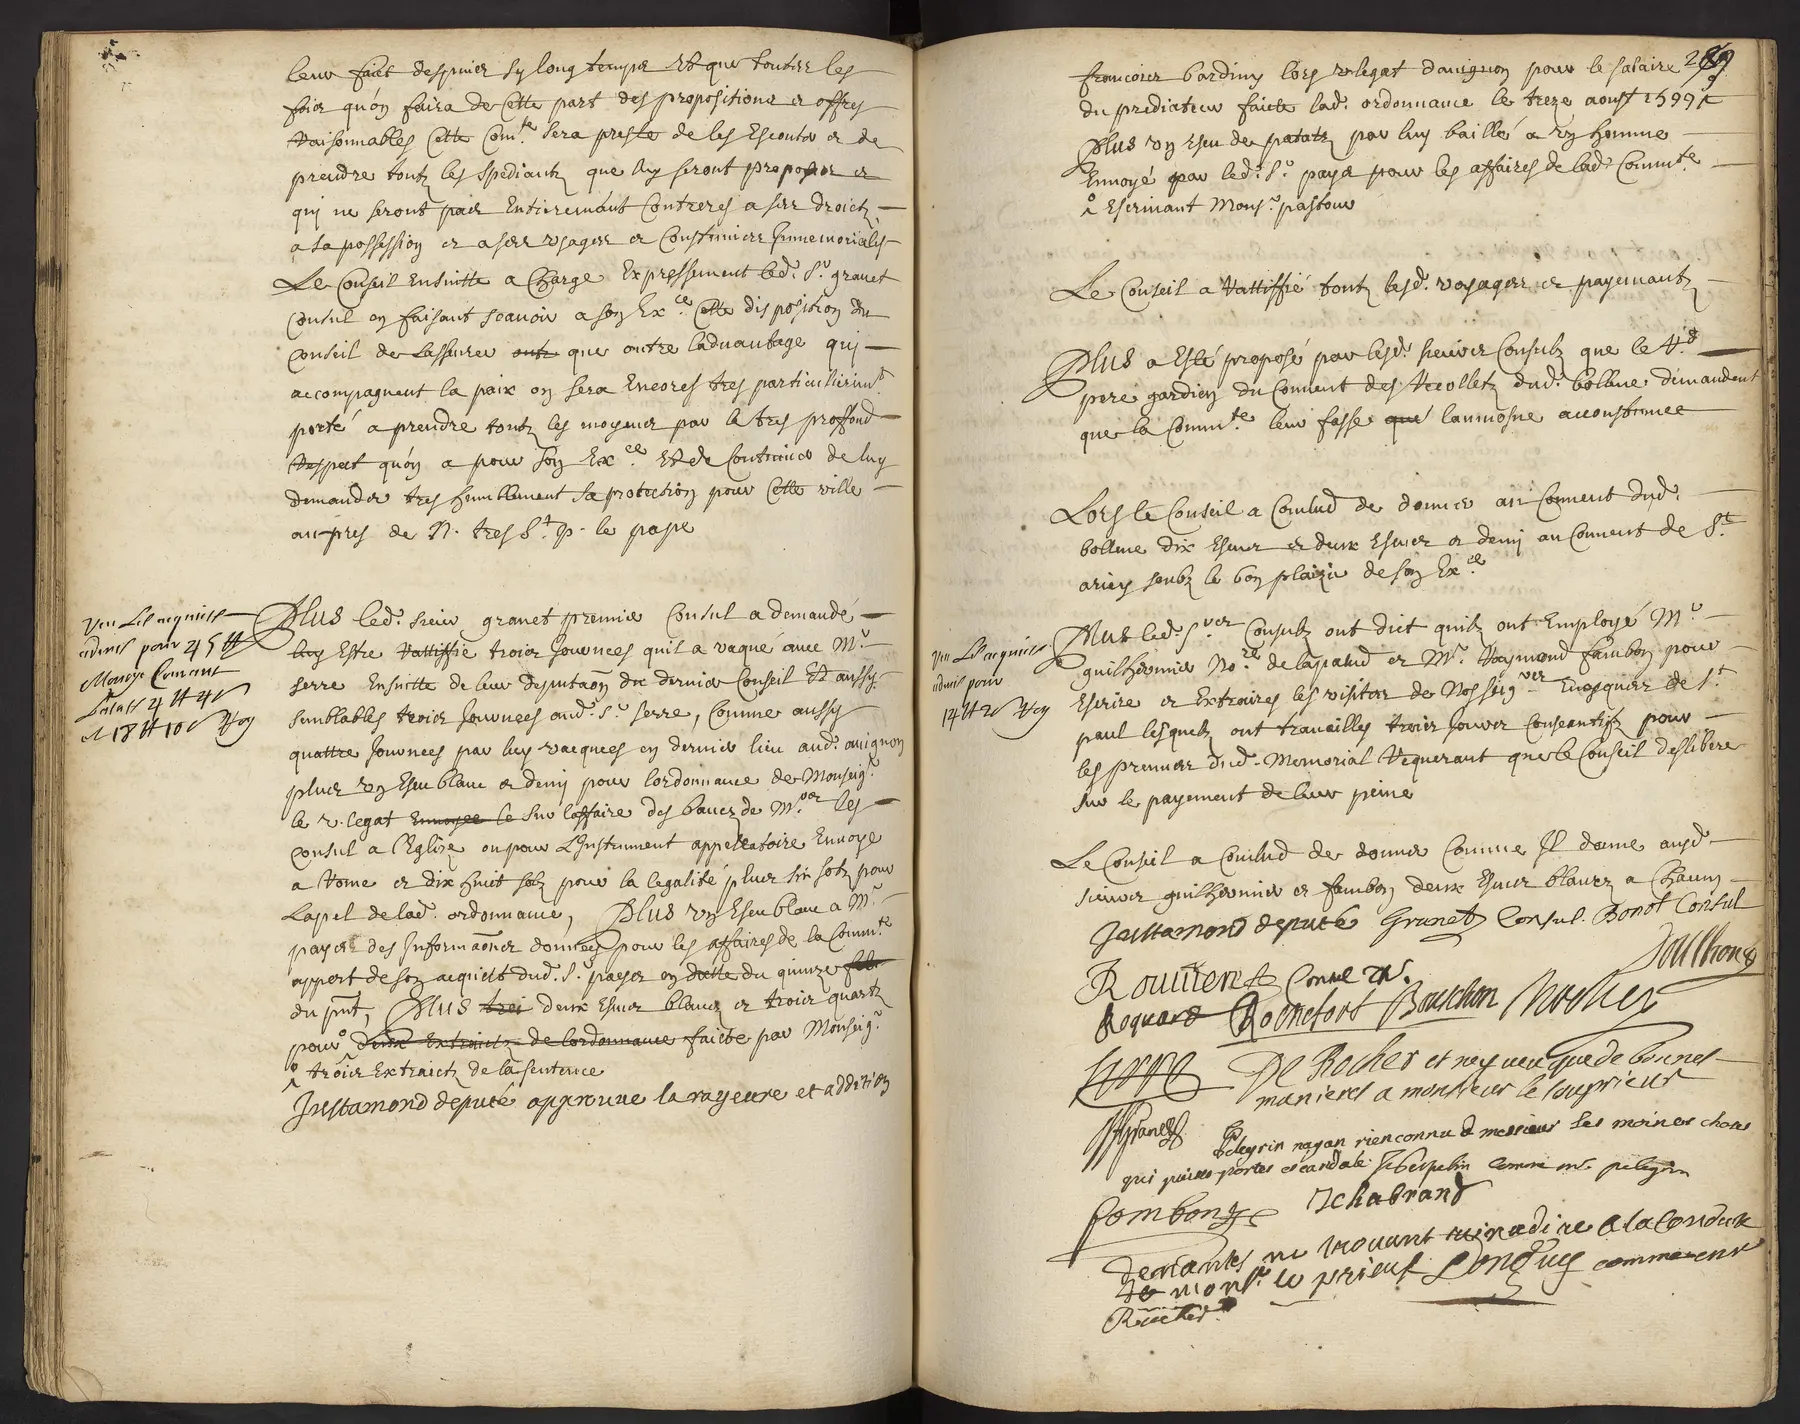 leur fait desprier sy long temps et que toutes les
fois quon faira de cette part des propositions et offres
raisonnables cette com.te sera preste de les escouter et de
prendre toutz les expediantz que luy seront proposés et
qui ne seront pas entierement contreres a ses droictz
a sa possession et a ses usages et coustumes immemorialles
Le Conseil ensuitte a chargé expressement led. Sr granet
consul en faisant scavoir a son Ex.ce cette disposition du
conseil de lasseurer que outre ladvantage qui
accompagnent la paix on sera encores tres particulierem.t
porté a prendre toutz les moyens par le tres proffond
respect quon a pour son Ex.ce et de continuer de luy
demander tres humblement sa protection pour cette ville
au pres de N. tres S.t P. le pape
Plus led. sieur granet premier Consul a demandé
luy estre rattiffie trois journees quil a vaqué avec Mr
serre ensuitte de leur deputaōn du dernier conseil et aussy
semblables trois journees aud. Sr serre, comme aussy
quattre journees par luy vacquees en dernier lieu aud. avignon
plus un escu blanc et demy pour lordonnance de Monseig.r
le v. legat sur laffaire des bancz de M.rs les
consul a l'Eglize ou pour l'instrument appellatoire envoyé
a rome et dix huit solz pour la legalité plus six solz pour
lapel de lad. ordonnance, Plus un escu blanc a Mr
payer des informaōns données pour les affaires de la Comm.te
appert de son acquict dud. Sr payer en datte du quinze
du pnt, Plus deux escus blancs et trois quartz
pour deux extraictz de lordonnance faicte par Monseig.r
trois extraictz de la sentence
Justamond deputé approuve la rayeure et addition
Veu les acquis
admis pour 45 ₶
Monoye courant
18 ₶ 10 s Roy
289
francois bardiny lors v. legat davignon pour le salaire
du prediateur faicte lad. ordonnance le treze aoust 1599
Plus un escu de patatz par luy baillé a un homme
envoyé par led. Sr payer pour les affaires de lad. Comm.te
escrivant Mons.r pastour
Le Conseil a rattiffié toutz lesd. voyages et payemantz
Plus a esté proposé par lesd. sieurs Consulz que le R.d
pere gardien du Couvent des Recolletz dud. bollene demandent
que la Comm.te leur fasse laumosne accoustumee
Lors le Conseil a Conclud de donner au Couvent dud.
bollene dix escus et deux escus et demy au Couvent de St
ariey soubz le bon plaizir de son Ex.ce
Plus led. s.rs Consulz ont dict quilz ont employé Mr
guilhermier No.re de lapalud et Mr Raymond fambon pour
escrire et extraires les visites de Nosseig.rs evesques de St
paul lesquelz ont travailles trois jours consecutifz pour
les premier dud. Memorial requerant que le Conseil deslibere
sur le payement de leur peine
Veu les acquis
admis pour
14 ₶ 2 s Roy
Le Conseil a Conclud de donner Comme Il donne ausd.
sieurs guilhermier et fambon deux escus blancz a chacun
Justamond deputé Granet Consul. Bonot Consul
Roquard Rochefort Bouschon
De Rocher et ne veu que de bonnes
manieres a monsieur le souprieur
Pelegrin nayan rien connu a messieurs les moines chose
qui puisse porter escandale
fombon Jchabrand
ne trouvant rien a dire a la conduite
de mons.r le prieur comme